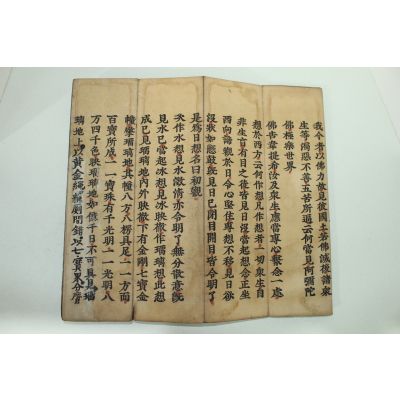 我今者以佛力故見彼國土若佛滅後諸衆
生等濁惡不善五苦所逼云何當見阿彌陀
佛極樂世界
佛告韋提希汝及衆生應當專心繫念一處
想於西方云何作想凡作想者一切衆生自
非生盲有目之徒皆見日沒當起想念正坐
西向諦觀於日令心堅住專想不移見日欲
沒狀如懸鼓旣見日已閉目開目皆令明了
是爲日想名曰初觀
次作水想見水澄清亦令明了無分散意旣
見水已當起冰想見冰映徹作琉璃想此想
成已見琉璃地內外映徹下有金剛七寶金
幢擎琉璃地其幢八方八楞具足一一方面
百寶所成一一寶珠有千光明一一光明八
萬四千色映琉璃地如億千日不可具見琉
璃地上以黃金繩雜廁間錯以七寶界分齊